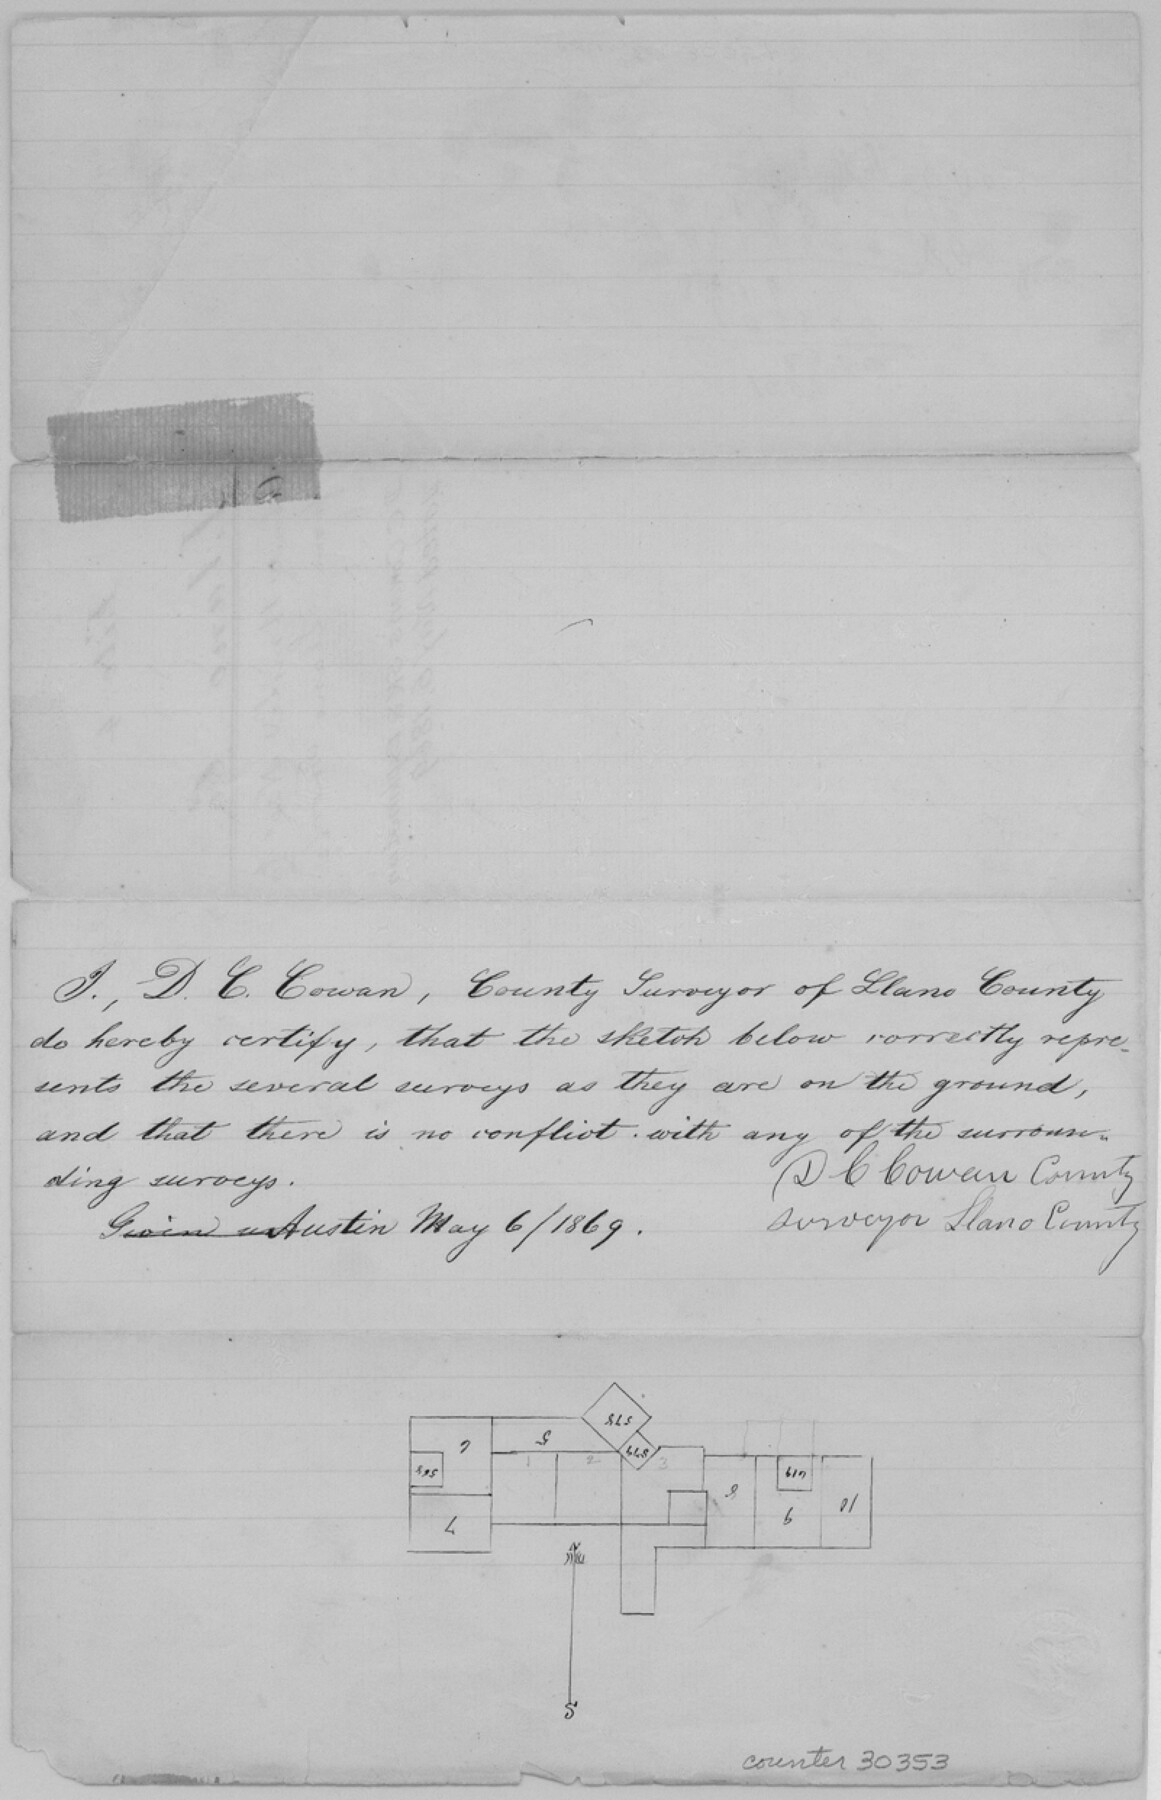 I., D. C. Cowan, County Surveyor of Llano County
do hereby certify, that the sketch below correctly repre-
sents the several surveys as they are on the ground,
and that there is no conflict with any of the surroun-
ding surveys.
D C Cowan County
surveyor Llano County
Given Austin May 6/1869.
578
5
6
1
2
3
7
8
9
10
619
S
counter 30353